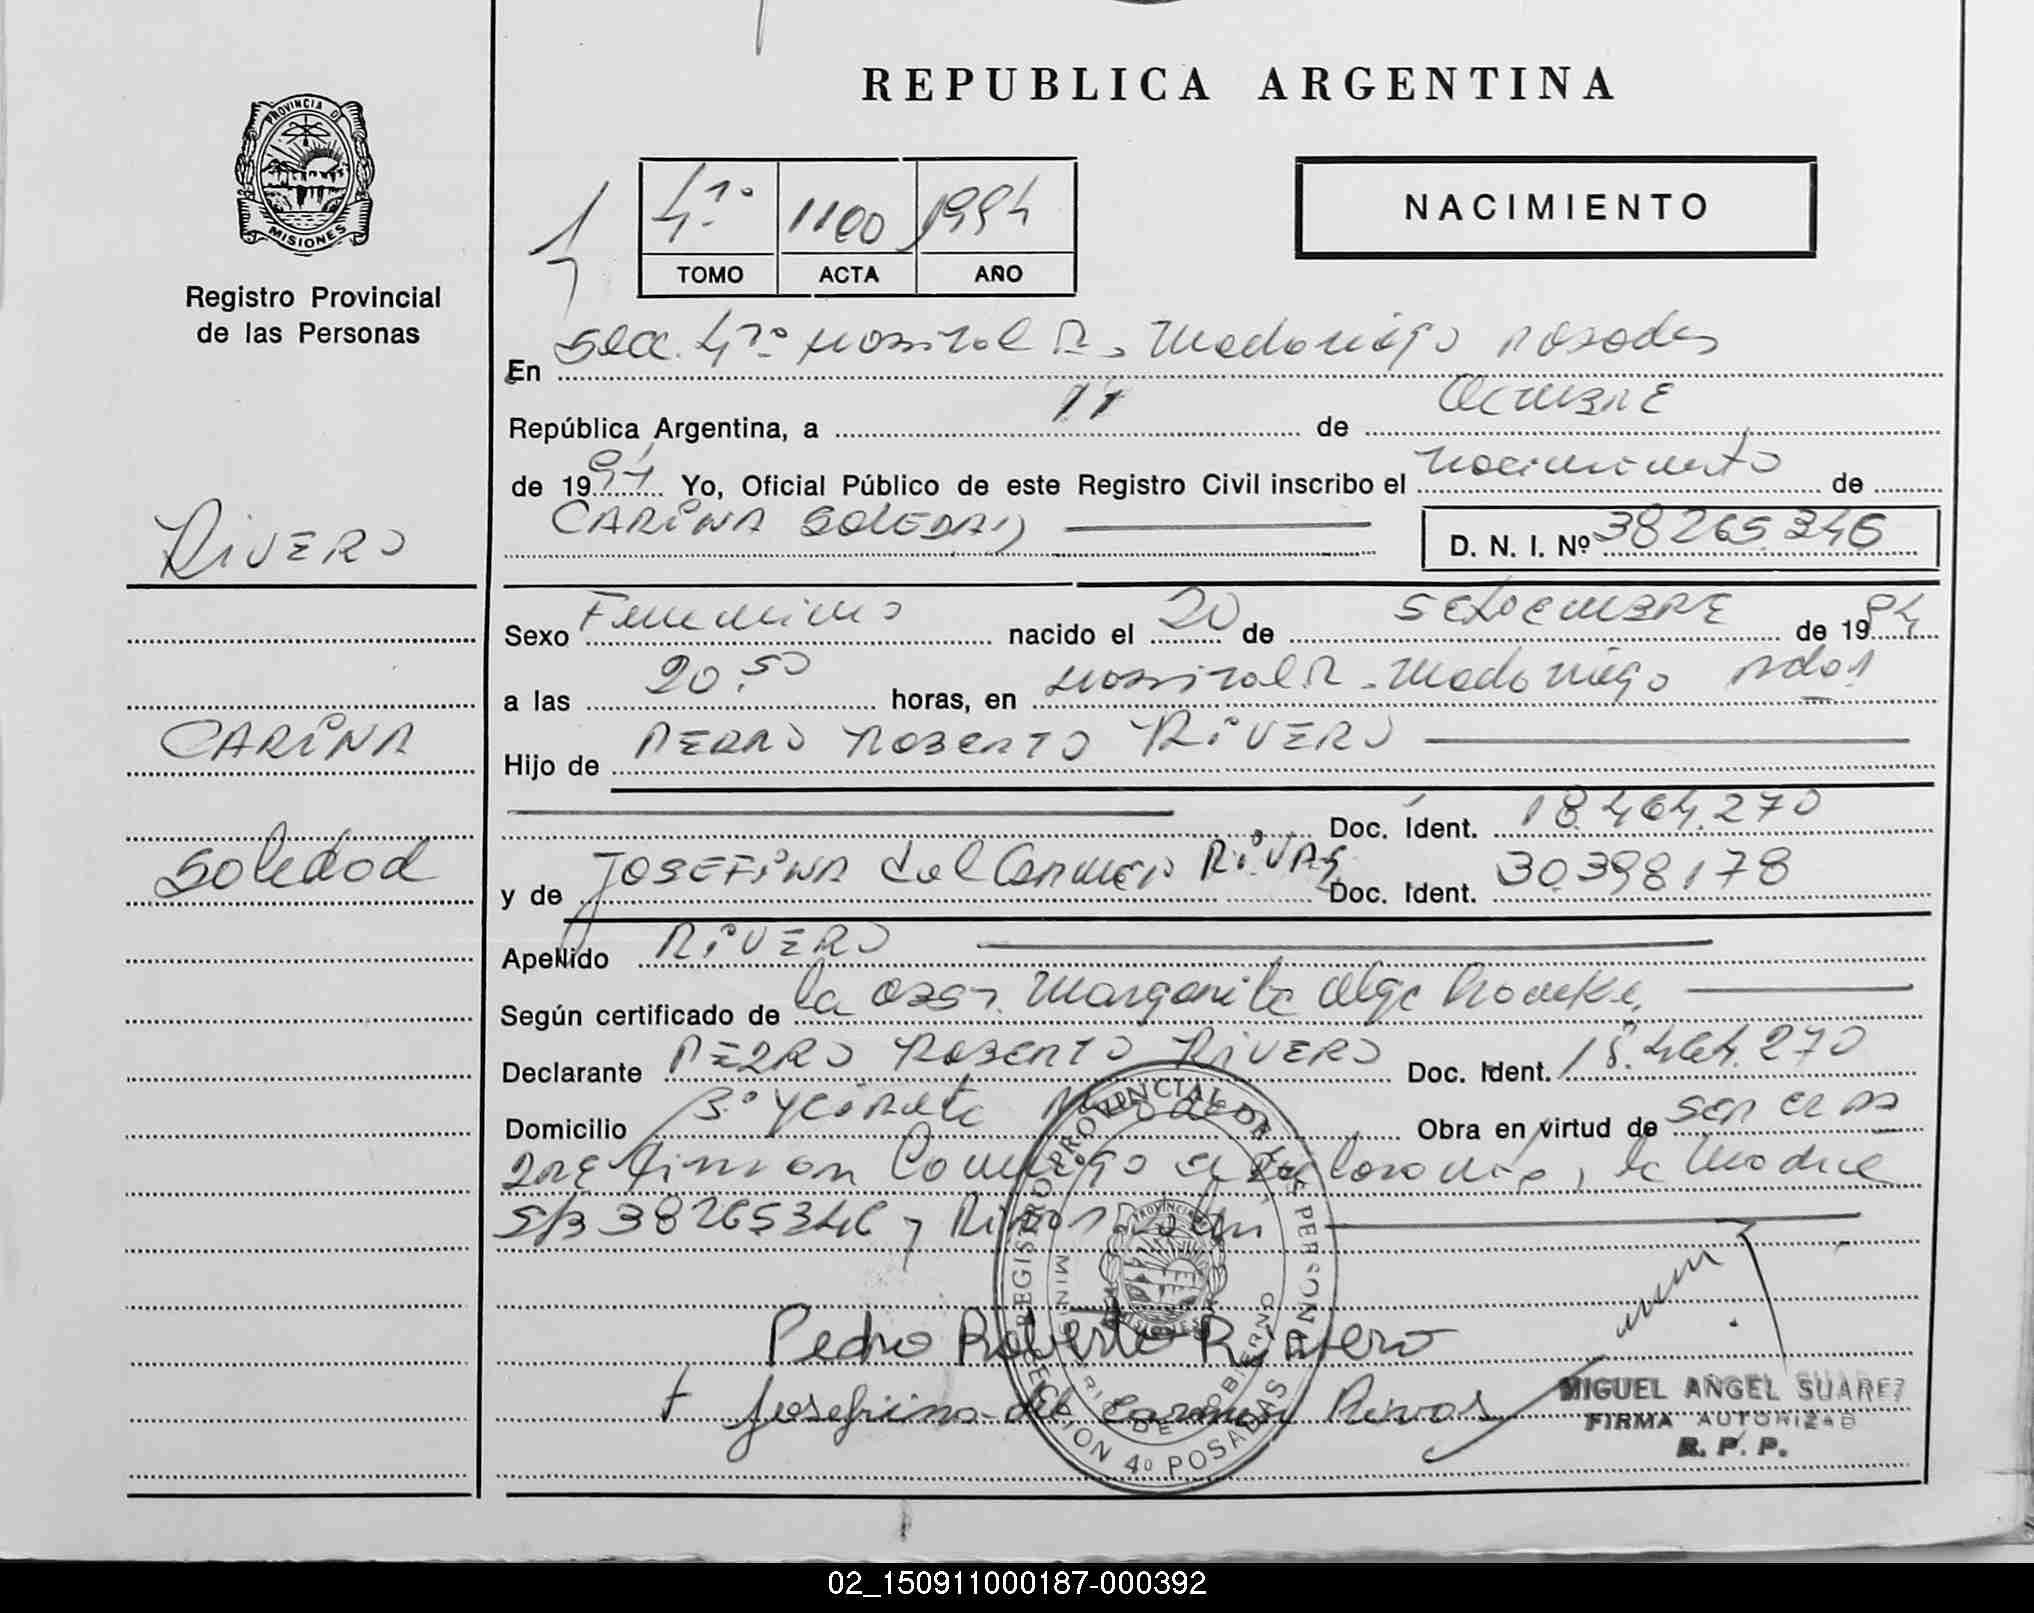 REPUBLICA ARGENTINA
PROVINCIA DE MISIONES
Registro Provincial
de las Personas
4º 1100 1994
TOMO ACTA AÑO
NACIMIENTO
En Secc. 4º Hospital R. Madariaga Posadas
República Argentina, a 11 de OCTUBRE
de 1994 Yo, Oficial Público de este Registro Civil inscribo el nacimiento de
CARINA SOLEDAD D. N. I. Nº 38265346
RIVERO
CARINA
Soledad
Sexo Femenino nacido el 20 de SETIEMBRE de 1994
a las 20,50 horas, en Hospital R. Madariaga Pdas
Hijo de PEDRO ROBERTO RIVERO
Doc. Ident. 18.464.270
y de JOSEFINA del Carmen RIVAS Doc. Ident. 30.398178
Apellido RIVERO
Según certificado de la Obst. Margarita Olga
Declarante PEDRO ROBERTO RIVERO Doc. Ident. 18.464.270
Domicilio Bº Yacireta Obra en virtud de ser el pa
dre firman Conmigo el, la Madre
S/B 38265346 y
REGISTRO PROVINCIAL DE LAS PERSONAS
MINISTERIO DE GOBIERNO
PROVINCIA DE MISIONES
SECCION 4º POSADAS
Pedro Roberto Rivero
+ Josefina del Carmen Rivas
MIGUEL ANGEL SUAREZ
FIRMA AUTORIZAD
R. P. P.
02_150911000187-000392